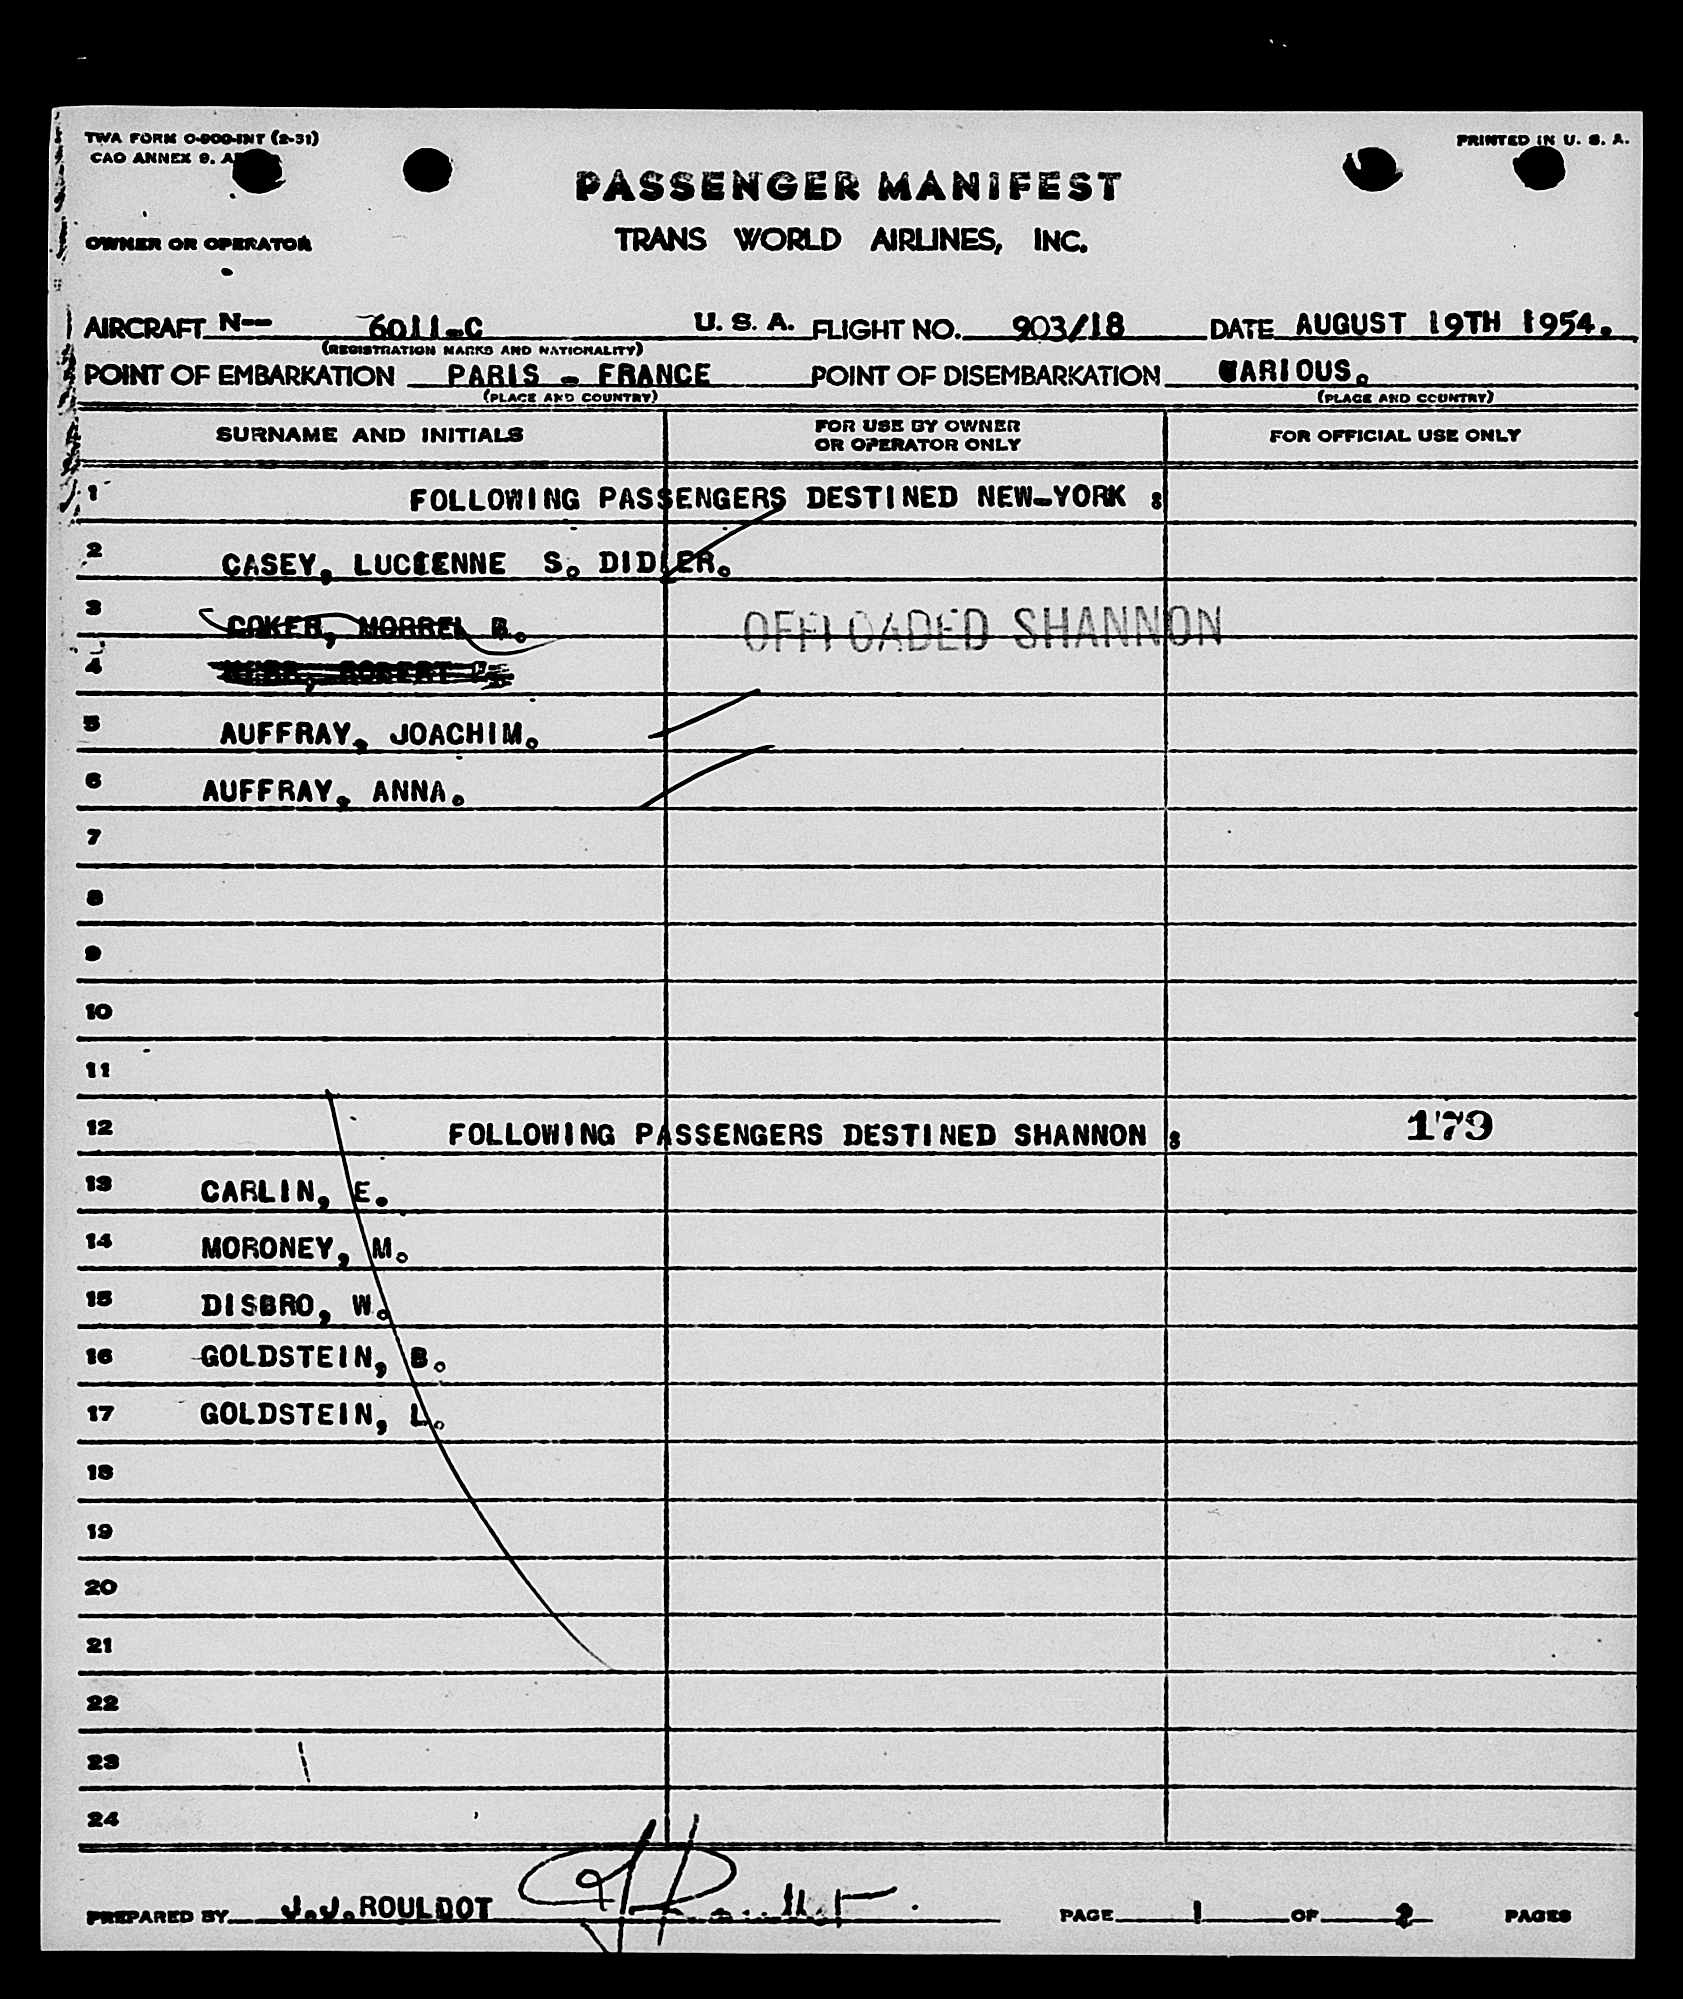 TWA FORM O-900-INT (2-51)
PRINTED IN U. S. A.
CAO ANNEX 9.
PASSENGER MANIFEST
OWNER OR OPERATOR
TRANS WORLD AIRLINES, INC.
AIRCRAFT N-- 6011-C U. S. A. FLIGHT NO. 903/18 DATE AUGUST 19TH 1954.
(REGISTRATION MARKS AND NATIONALITY)
POINT OF EMBARKATION PARIS - FRANCE POINT OF DISEMBARKATION VARIOUS.
(PLACE AND COUNTRY) (PLACE AND COUNTRY)
SURNAME AND INITIALS FOR USE BY OWNER OR OPERATOR ONLY FOR OFFICIAL USE ONLY
1 FOLLOWING PASSENGERS DESTINED NEW-YORK :
2 CASEY, LUCIENNE S. DIDIER.
3 COKER, MORREL B. OFFLOADED SHANNON
4 WEBB, ROBERT
5 AUFFRAY, JOACHIM.
6 AUFFRAY, ANNA.
7
8
9
10
11
12 FOLLOWING PASSENGERS DESTINED SHANNON : 179
13 CARLIN, E.
14 MORONEY, M.
15 DISBRO, W.
16 GOLDSTEIN, B.
17 GOLDSTEIN, L.
18
19
20
21
22
23
24
PREPARED BY J.J.ROULDOT PAGE 1 OF 2 PAGES